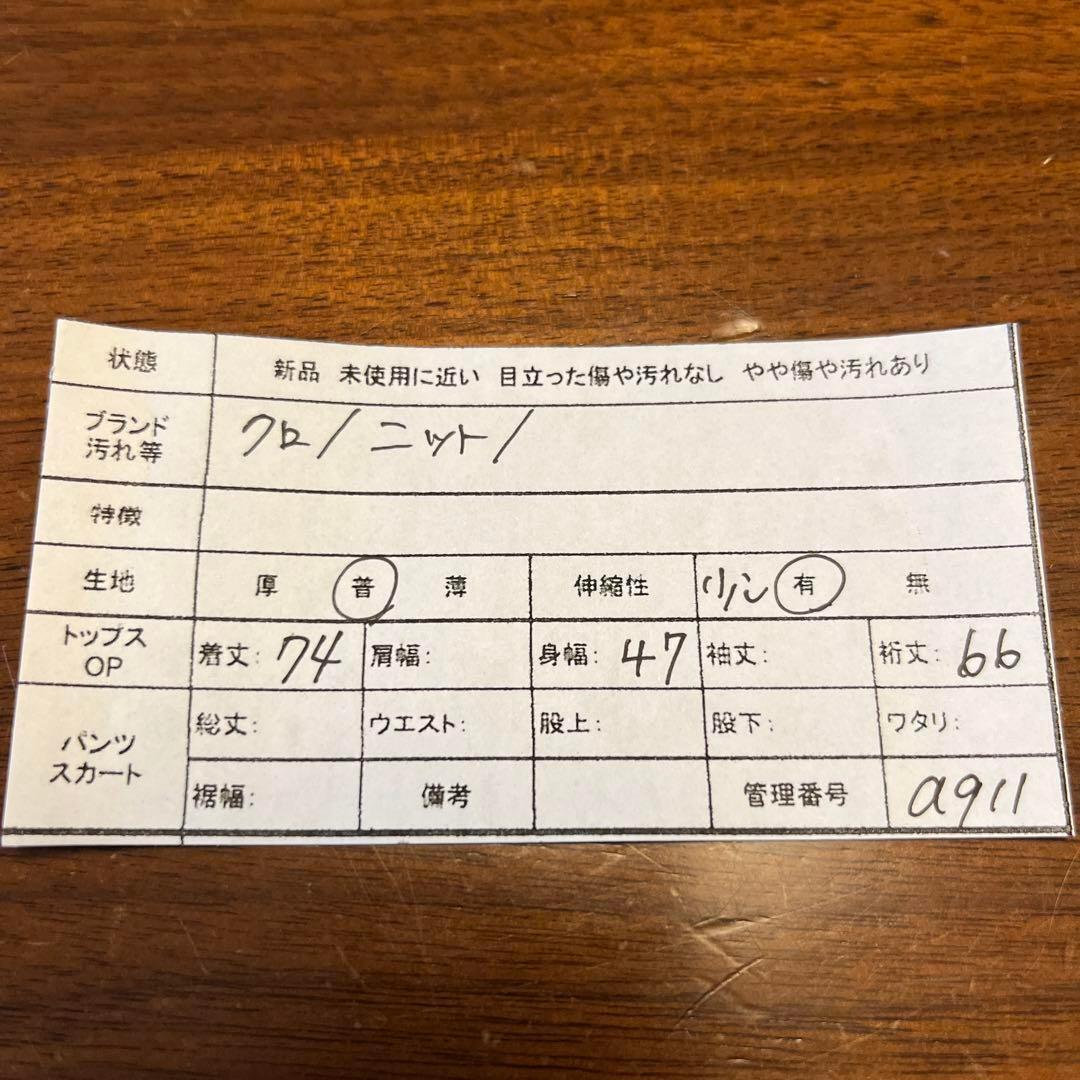 状態 新品 未使用に近い 目立った傷や汚れなし やや傷や汚れあり
ブランド 汚れ等 クロ/ニット/
特徴
生地 厚 普 薄 伸縮性 有 無
トップス OP 着丈: 74 肩幅: 身幅: 47 袖丈: 裄丈: 66
パンツ スカート 総丈: ウエスト: 股上: 股下: ワタリ:
裾幅: 備考 管理番号 a911